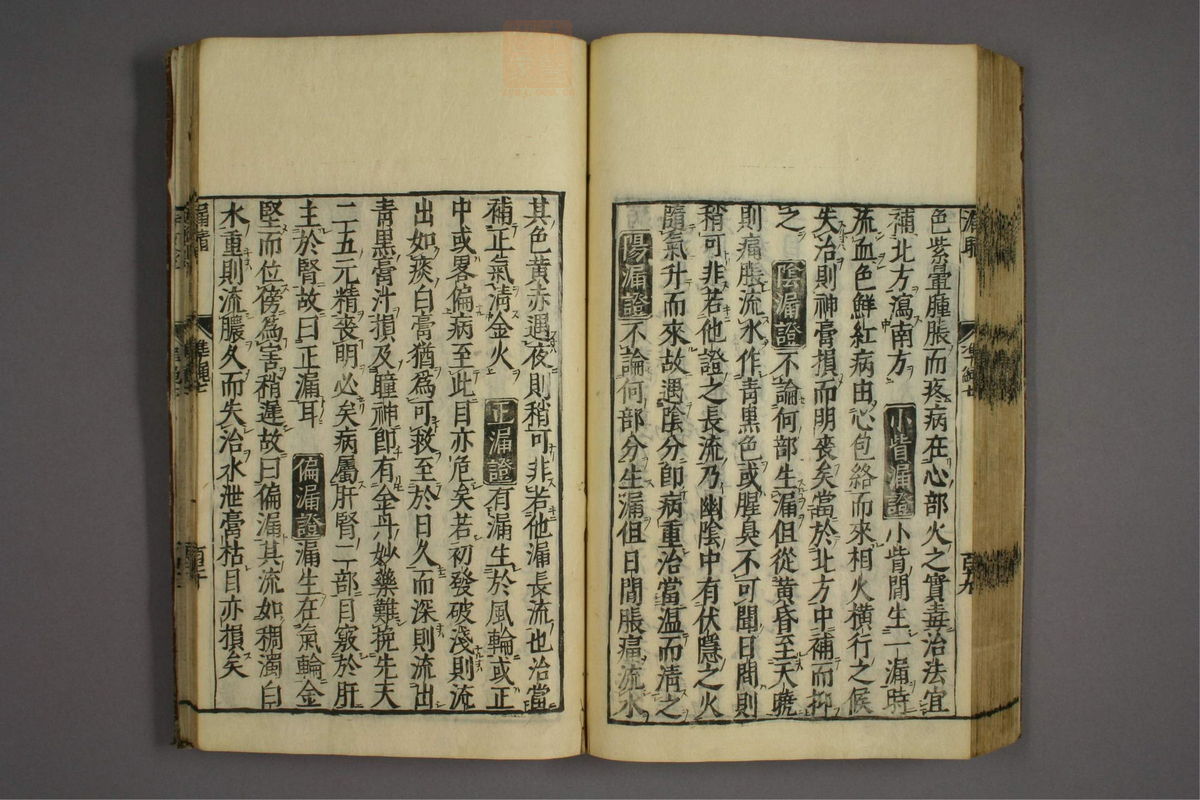 色紫暈腫脹而疼病在心部火之實毒治法宜
補北方瀉南方 小眥漏證 小眥間生一漏時
流血色鮮紅病由心包絡而來相火橫行之候
失治則神膏損而明喪矣當於北方中補而抑
之 陰漏證 不論何部生漏但從黃昏至天曉
則痛脹流水作青黑色或腥臭不可聞日間則
稍可非若他證之長流乃幽陰中有伏隱之火
隨氣升而來故遇陰分卽病重治當温而清之
陽漏證 不論何部分生漏但日間脹痛流水
其色黃赤遇夜則稍可非若他漏長流也治當
補正氣淸金火 正漏證 有漏生於風輪或正
中或畧偏病至此目亦危矣若初發破淺則流
出如痰白膏猶爲可救至於日久而深則流出
青黑膏汁損及瞳神卽有金丹妙藥難挽先天
二五元精喪明必矣病屬肝腎二部目竅於肝
主於腎故曰正漏耳 偏漏證 漏生在氣輪金
堅而位傍爲害稍遲故曰偏漏其流如稠濁白
水重則流膿久而失治水泄膏枯目亦損矣